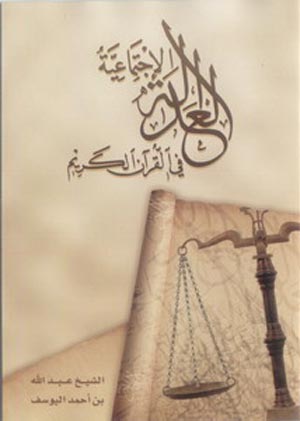 العدالة
الإجتماعية
في القرآن الكريم
الشيخ عبد الله
بن أحمد اليوسف